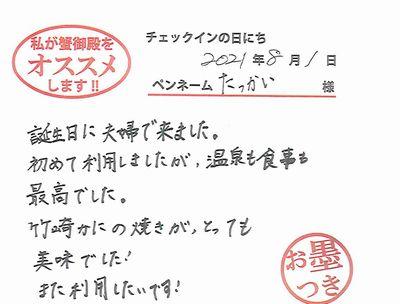 私が蟹御殿を
オススメ
します!!
チェックインの日にち
2021年8月1日
ペンネーム たっかい 様
誕生日に夫婦で来ました。
初めて利用しましたが、温泉も食事も
最高でした。
竹崎かにの焼きが、とっても
美味でした!
また利用したいです!
お墨
つき